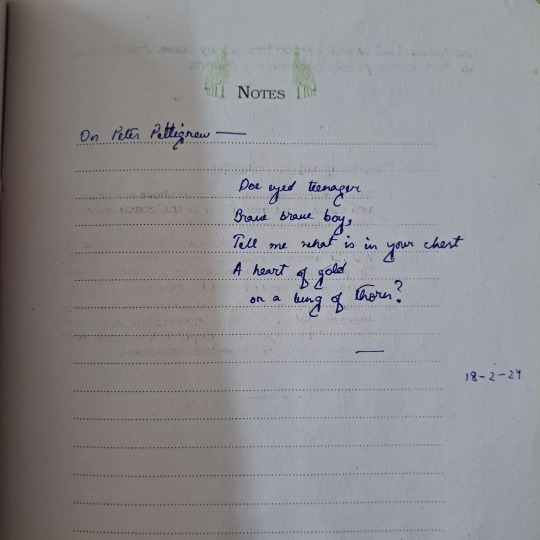 NOTES
On Peter Pettigrew —
Doe eyed teenager
Brave brave boy,
Tell me what is in your chest
A heart of gold
or a lung of thorn?
—
18-2-24